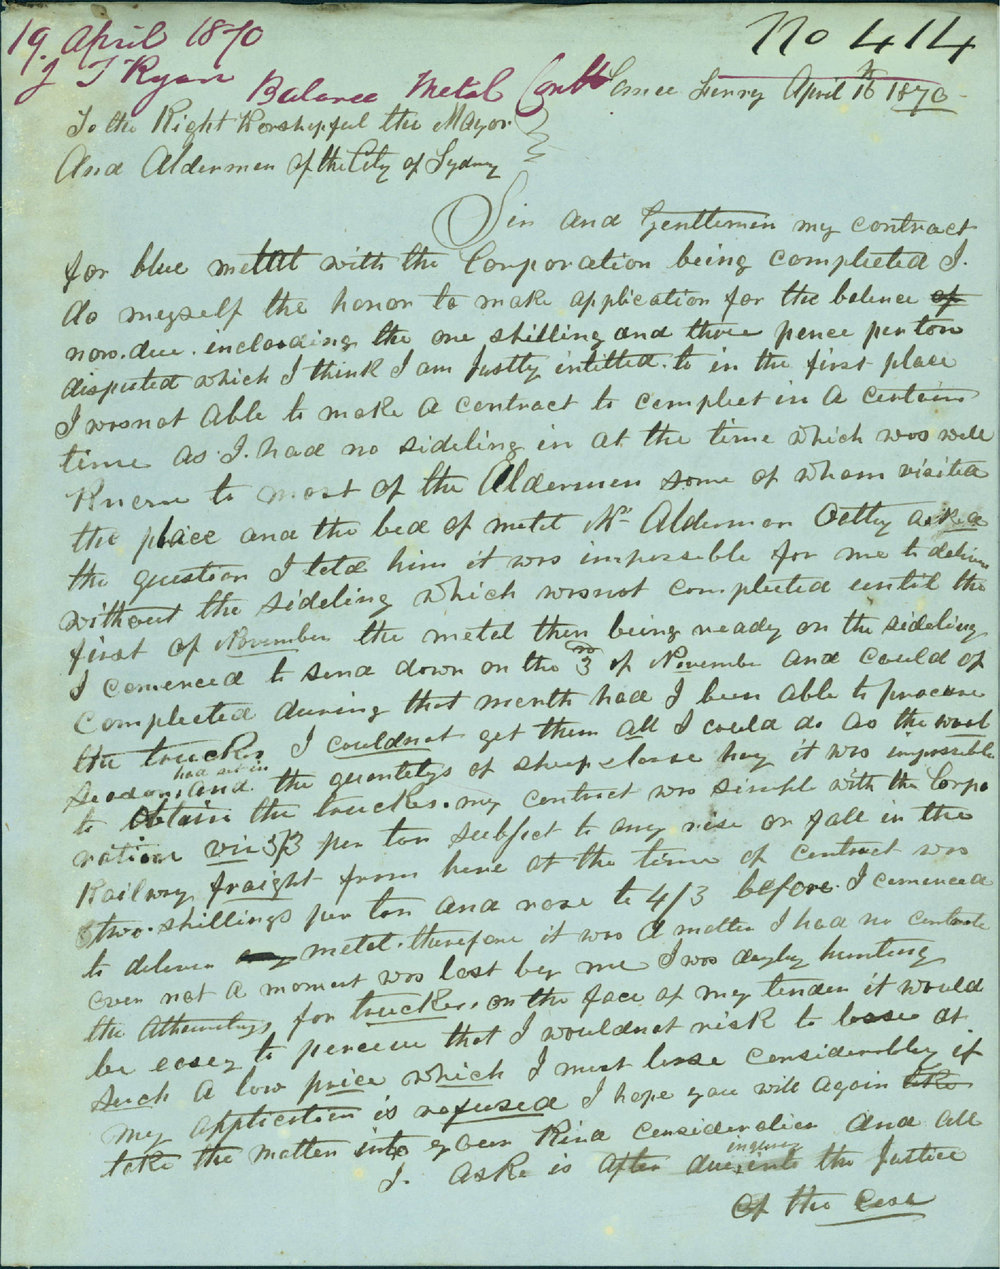 19 April 1870
No 414
J T Ryan Balance Metal Contt
Lance Ferry April 18th 1870
To the Right Worshepful the Mayor
And Aldermen of the City of Sydney
Sir and Gentlemen my contract
for blue metal with the Corporation being compleeted I.
do meyself the honor to make application for the balence of
now. due. including the one shilling and three pence per ton
disputed which I think I am Justly intitled. to in the first place
I was not able to make a contract to compleet in a certain
time as. I. had no sideling in at the time which was well
Knerw to most of the Aldermen some of whom visited
the place and the bed of metel Mr Alderman Oatley asked
the question I told him it was impossible for me to deliver
without the sideling which was not compleeted until the
first of November the metel then being ready on the sideling
I comenced to send down on the 3 of November and could of
compleeted during that month had I been able to procure
the trucks I could not get them all I could do as the wool
Seadon had set in and the quantetys of sheep hay it was impossible
to obtain the trucks. my contract was simple with the Corpo
ration viz 3/3 per ton subject to any rise or fall in the
Railway fraight from here at the time of contract was
two. shillings per ton and rose to 4/3 before. I comenced
to deliver any metel. therefore it was a matter I had no controle
over not a moment was lost by me I was dayley hunting
the Athoretys for trucks. on the face of my tender it would
be easey to perceive that I would not risk to losse at
such a low price which I must losse considerabley if
my application is refused I hope you will again take
take the matter into your kind consideration and all
I. aske is after due inquirey into the Justice
of the case